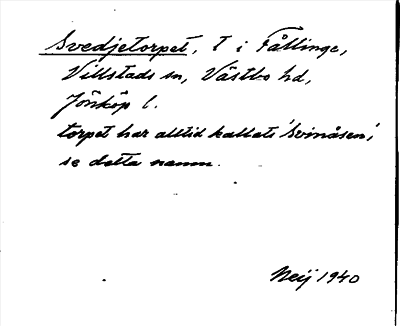 Svedjetorpet, T i Fållinge,
Villstads sn, Västbo hd,
Jönköp l.
torpet har alltid kallats 'Svinåsen',
se detta namn.
Neij 1940